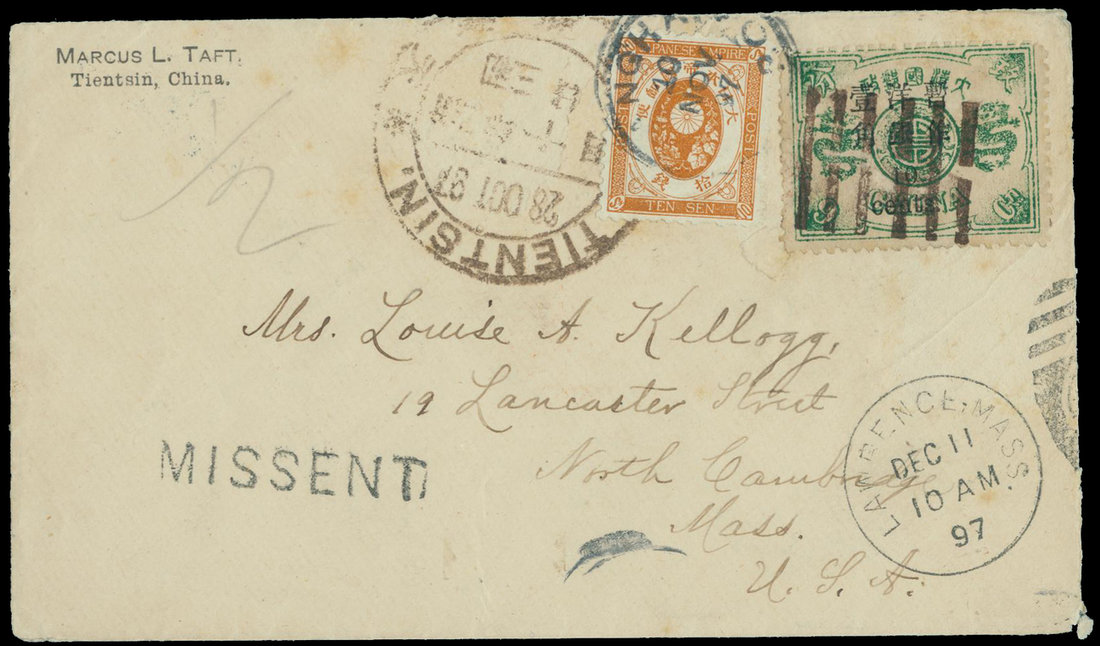 MARCUS L. TAFT,
Tientsin, China.
1/2
TIENTSIN
28 OCT 97
JAPANESE EMPIRE
POST
TEN SEN
拾 錢
NOV
暫 作 洋 銀
10
cents
Mrs. Louise A. Kellogg,
19 Lancaster Street
North Cambridge
Mass.
U. S. A.
MISSENT
LAWRENCE, MASS.
DEC 11
10 AM
97